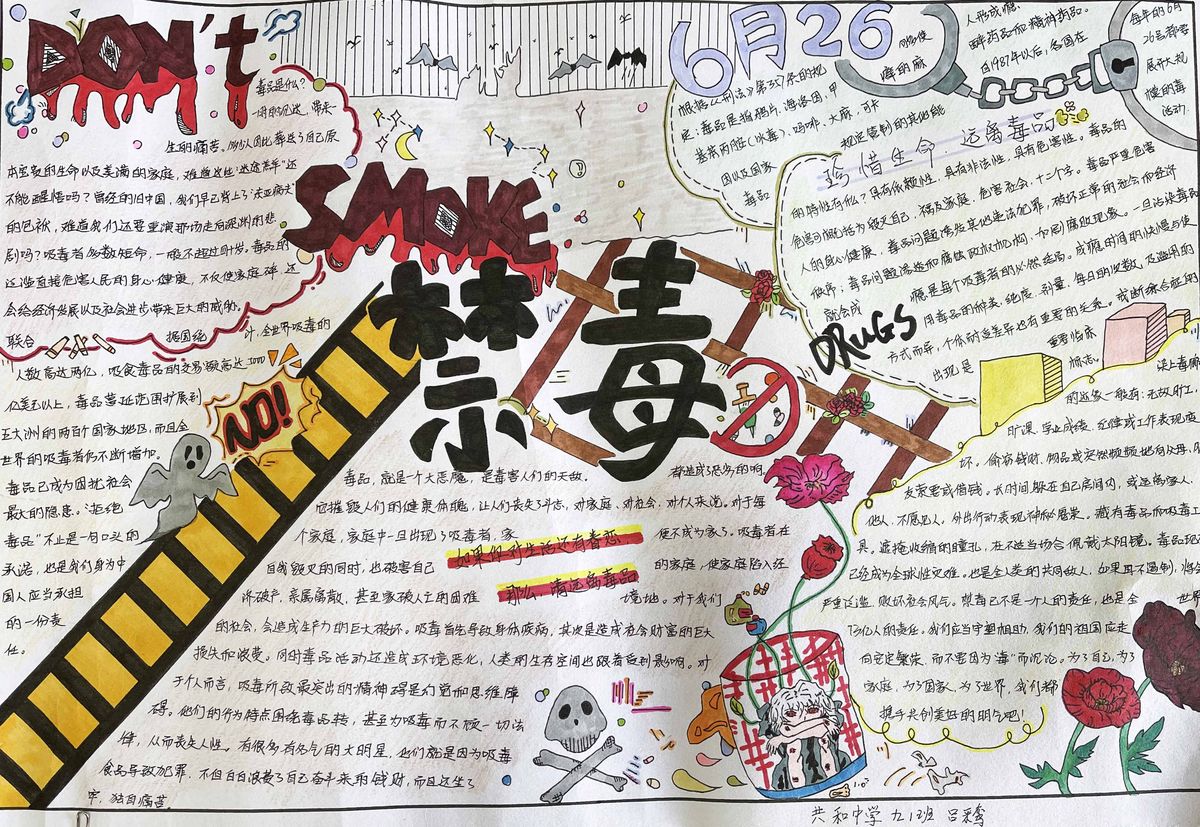 DON't
SMOKE
DRUGS
禁毒
NO!
6月26
毒品是什么?
一时的沉迷,带来一
生的痛苦。多少人因此葬送了自己原
本宝贵的生命以及美满的家庭,难道这些还
不能醒悟吗?曾经的旧中国,我们早已背上了"东亚病夫"
的包袱,难道我们还要重演那场走向深渊的悲
剧吗?吸毒者多数短命,一般不超过
毒品的
泛滥直接危害人民的身心健康,不仅使家庭
还
会给经济发展以及社会进步带来巨大的威胁。
联合
据国统
计,全世界吸毒的
人数高达两亿,吸食毒品的交易额高达
亿美元以上,毒品蔓延范围扩展到
五大洲的两百个国家地区,而且全
世界的吸毒者仍不断增加。
毒品已成为困扰社会
最大的隐患。"拒绝
毒品"不止是一句口头的
承诺,也是我们身为中
国人应当承担
的一份责
任。
毒品,就是一个大恶魔,是毒害人们的天敌。
它摧毁人们的健康体魄,让人们丧失了斗志,对家庭、对社会、对个人来说。对于每
个家庭,家庭中一旦出现了吸毒者,家
便不成为家了。吸毒者在
自我毁灭的同时,也破害自己
的家庭,使家庭陷入经
济破产、亲属离散、甚至家破人亡的困难
境地。对于我们
如果你对生活还有眷恋
那么,请远离毒品
的社会,会造成生产力的巨大破坏。吸毒首先导致身体疾病,其次是造成社会财富的巨大
损失和浪费。同时毒品活动还造成环境恶化,人类的生存空间也跟着受到影响。对
于个人而言,吸毒所致最突出的精神
碍是幻觉和思维障
碍。他们的行为特点围绕毒品转,甚至为吸毒而不顾一切法
律,从而丧失人性。有很多有名气的大明星,他们就是因为吸毒
食品导致犯罪,不但白白浪费了自己奋斗来的钱财,而且还坐了
牢,独自痛苦。
根据《刑法》第357条的规
定:毒品是指鸦片、海洛因、甲
基苯丙胺(冰毒)、吗啡、大麻、可卡
因以及国家
规定管制的其他能
够使
人形成瘾
癖的麻
醉药品和精神药品。
自1987年以后,各国在
每年的6月
26号都要
展开大规
模的毒
活动.
珍惜生命 远离毒品
毒品
的特性有依赖性,具有非法性,具有危害性。毒品的
危害可概括为毁灭自己、祸及家庭、危害社会,十二个字。毒品严重危害
人的身心健康,毒品问题诱发其他违法犯罪,破坏正常的社会和经济
秩序,毒品问题渗透和腐蚀政权机构,加剧腐败现象。一旦沾染毒品
就会成
瘾是每个吸毒者的必然结局。成瘾时间的快慢与使
用毒品的种类、纯度、剂量、每日的次数,及滥用的
方式而异,个体耐受差异也有重要的关系。戒断综合征的
出现是
重要临床
指征。
染上毒瘾
旷课、学业成绩、纪律或工作表现变
坏。偷窃钱财、物品或突然频频地有从父母、
友索要或借钱。长时间躲在自己房间内,或远离家人、
他人,不愿见人。外出行动表现神秘鬼祟。藏有毒品和吸毒工
具。遮掩收缩的瞳孔,在不适当场合佩戴太阳镜。毒品现
已经成为全球性灾难。也是全人类的共同敌人,如果再不遏制,将会
严重泛滥,败坏社会风气。禁毒已不是一个人的责任,也是全
世界
73亿人的责任。我们应当守望相助,我们的祖国应走
向安定繁荣,而不要因为"毒"而沉沦。为了自己,为了
家庭,为了国家,为了世界,我们都
携手共创美好的明天吧!
共和中学 九1班 吕